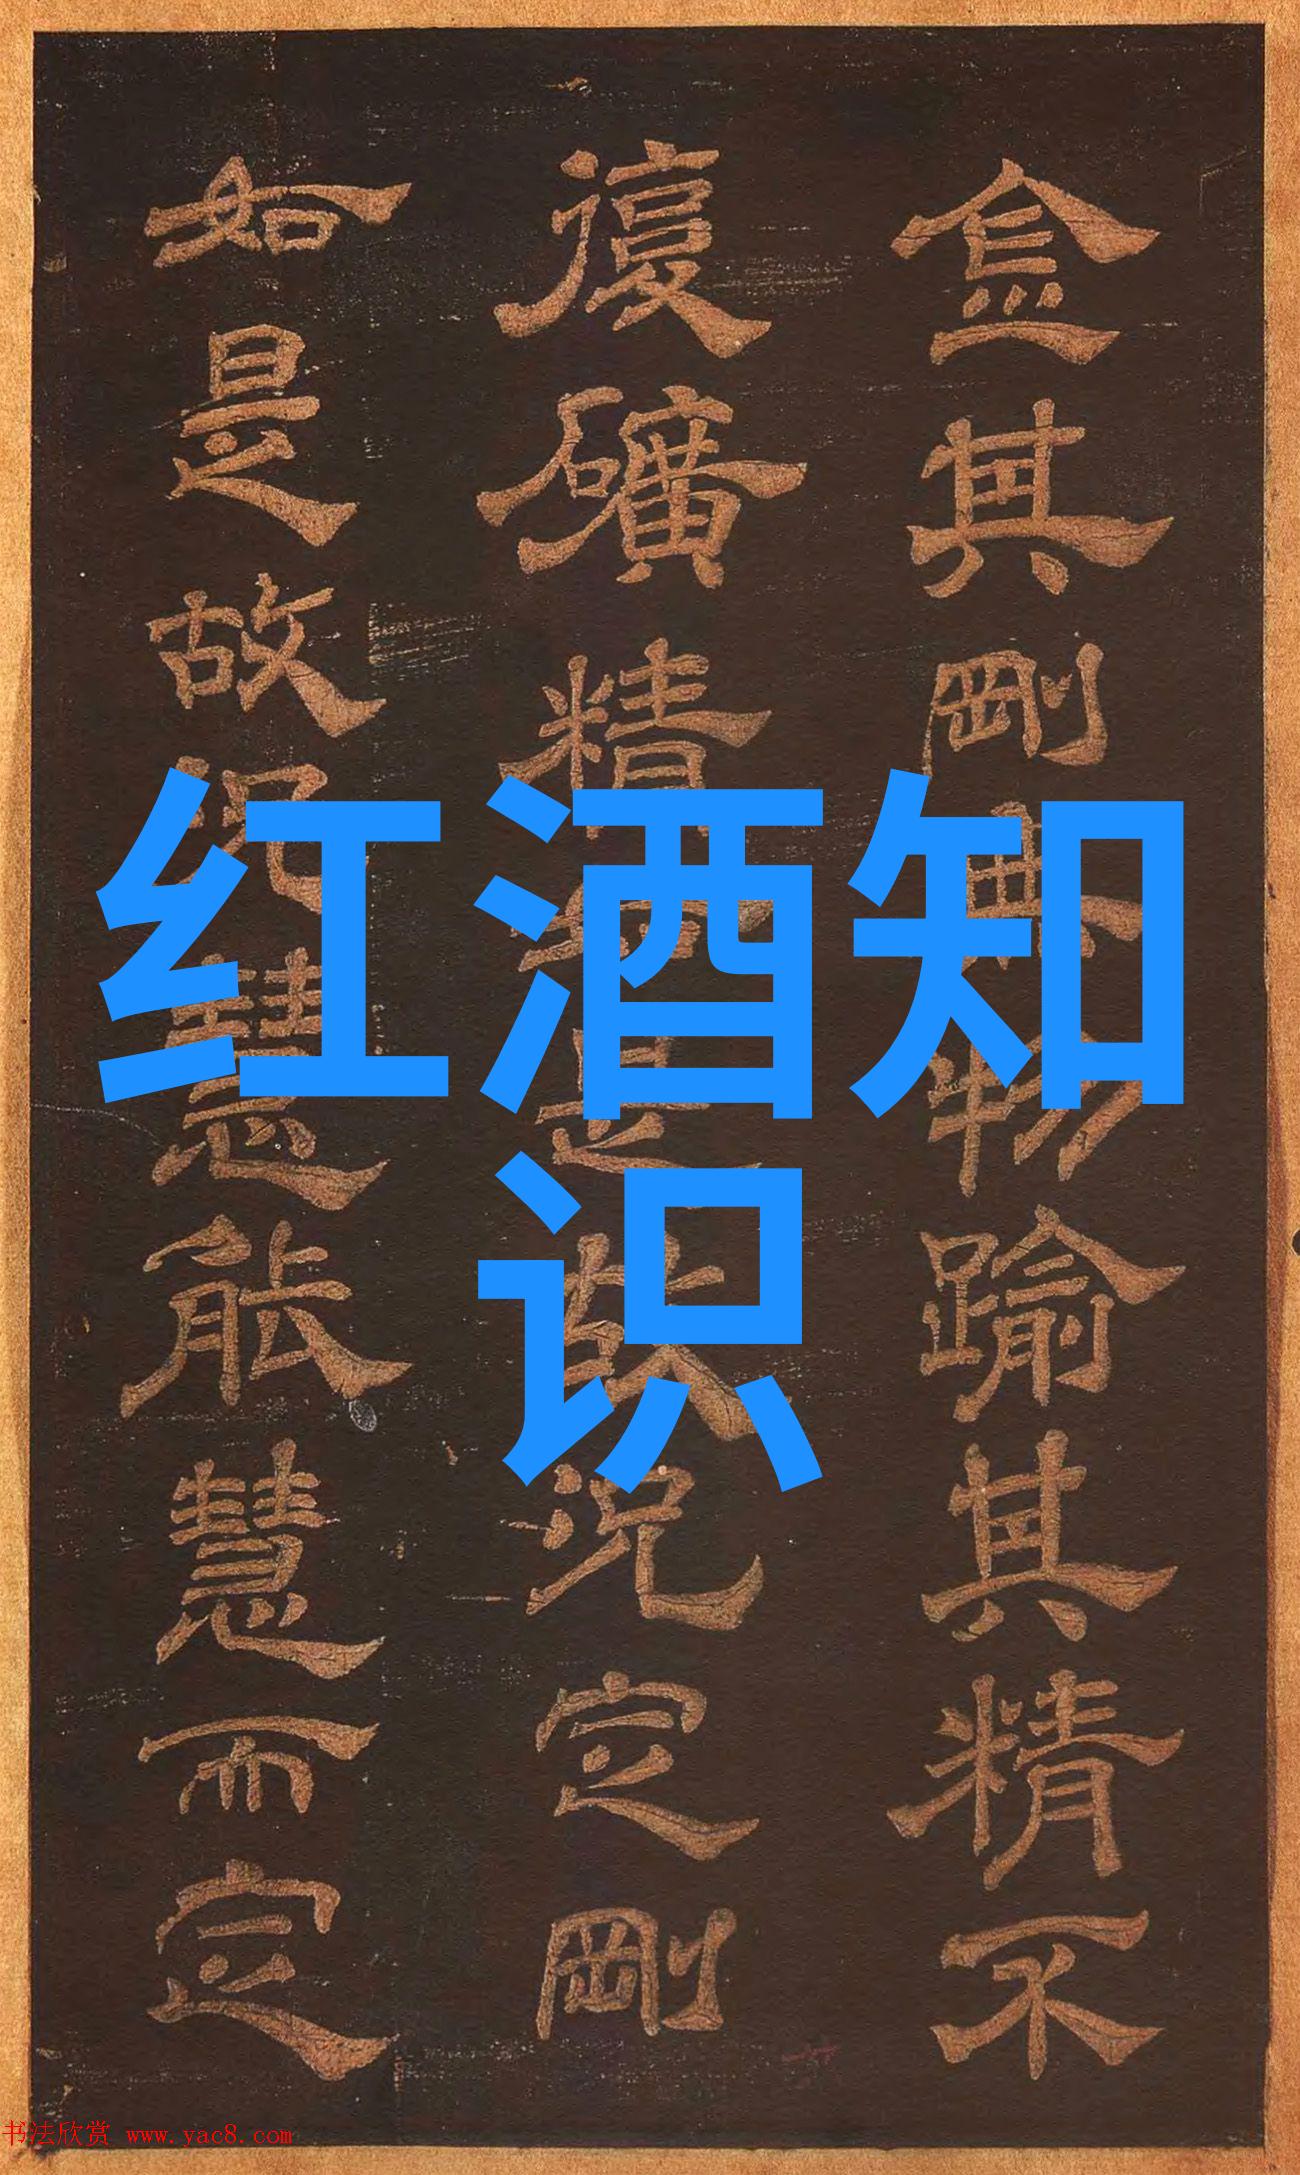 红酒知
识
金其剛無物踰其精不
復礦精是故況定剛
如是故況慧能慧而定
书法欣赏 www.yac8.com